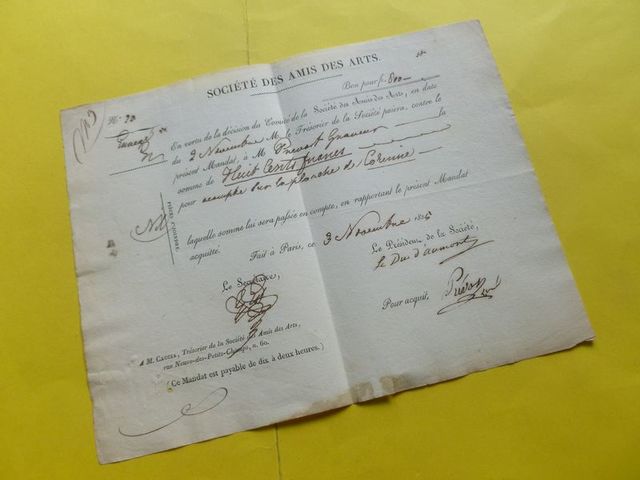 SOCIÉTÉ DES AMIS DES ARTS.
N.º 73
Bon pour f. 800
En vertu de la décision du Comité de la Société des Amis des Arts, en date
du 2 Novembre M. le Trésorier de la Société paiera, contre le
présent Mandat, à M. Prevost Graveur la
somme de Huit Cents francs
pour acompte sur la planche de Corinne
PIÈCES A JOINDRE.
laquelle somme lui sera passée en compte, en rapportant le présent Mandat
acquitté.
Fait à Paris, ce 3 Novembre
Le Président de la Société,
Le Duc d'aumont
Le Secrétaire,
Pour acquit,
A M. Trésorier de la Société des Amis des Arts,
rue Neuve-des-Petits-Champs, n. 60.
(Ce Mandat est payable de dix à deux heures.)